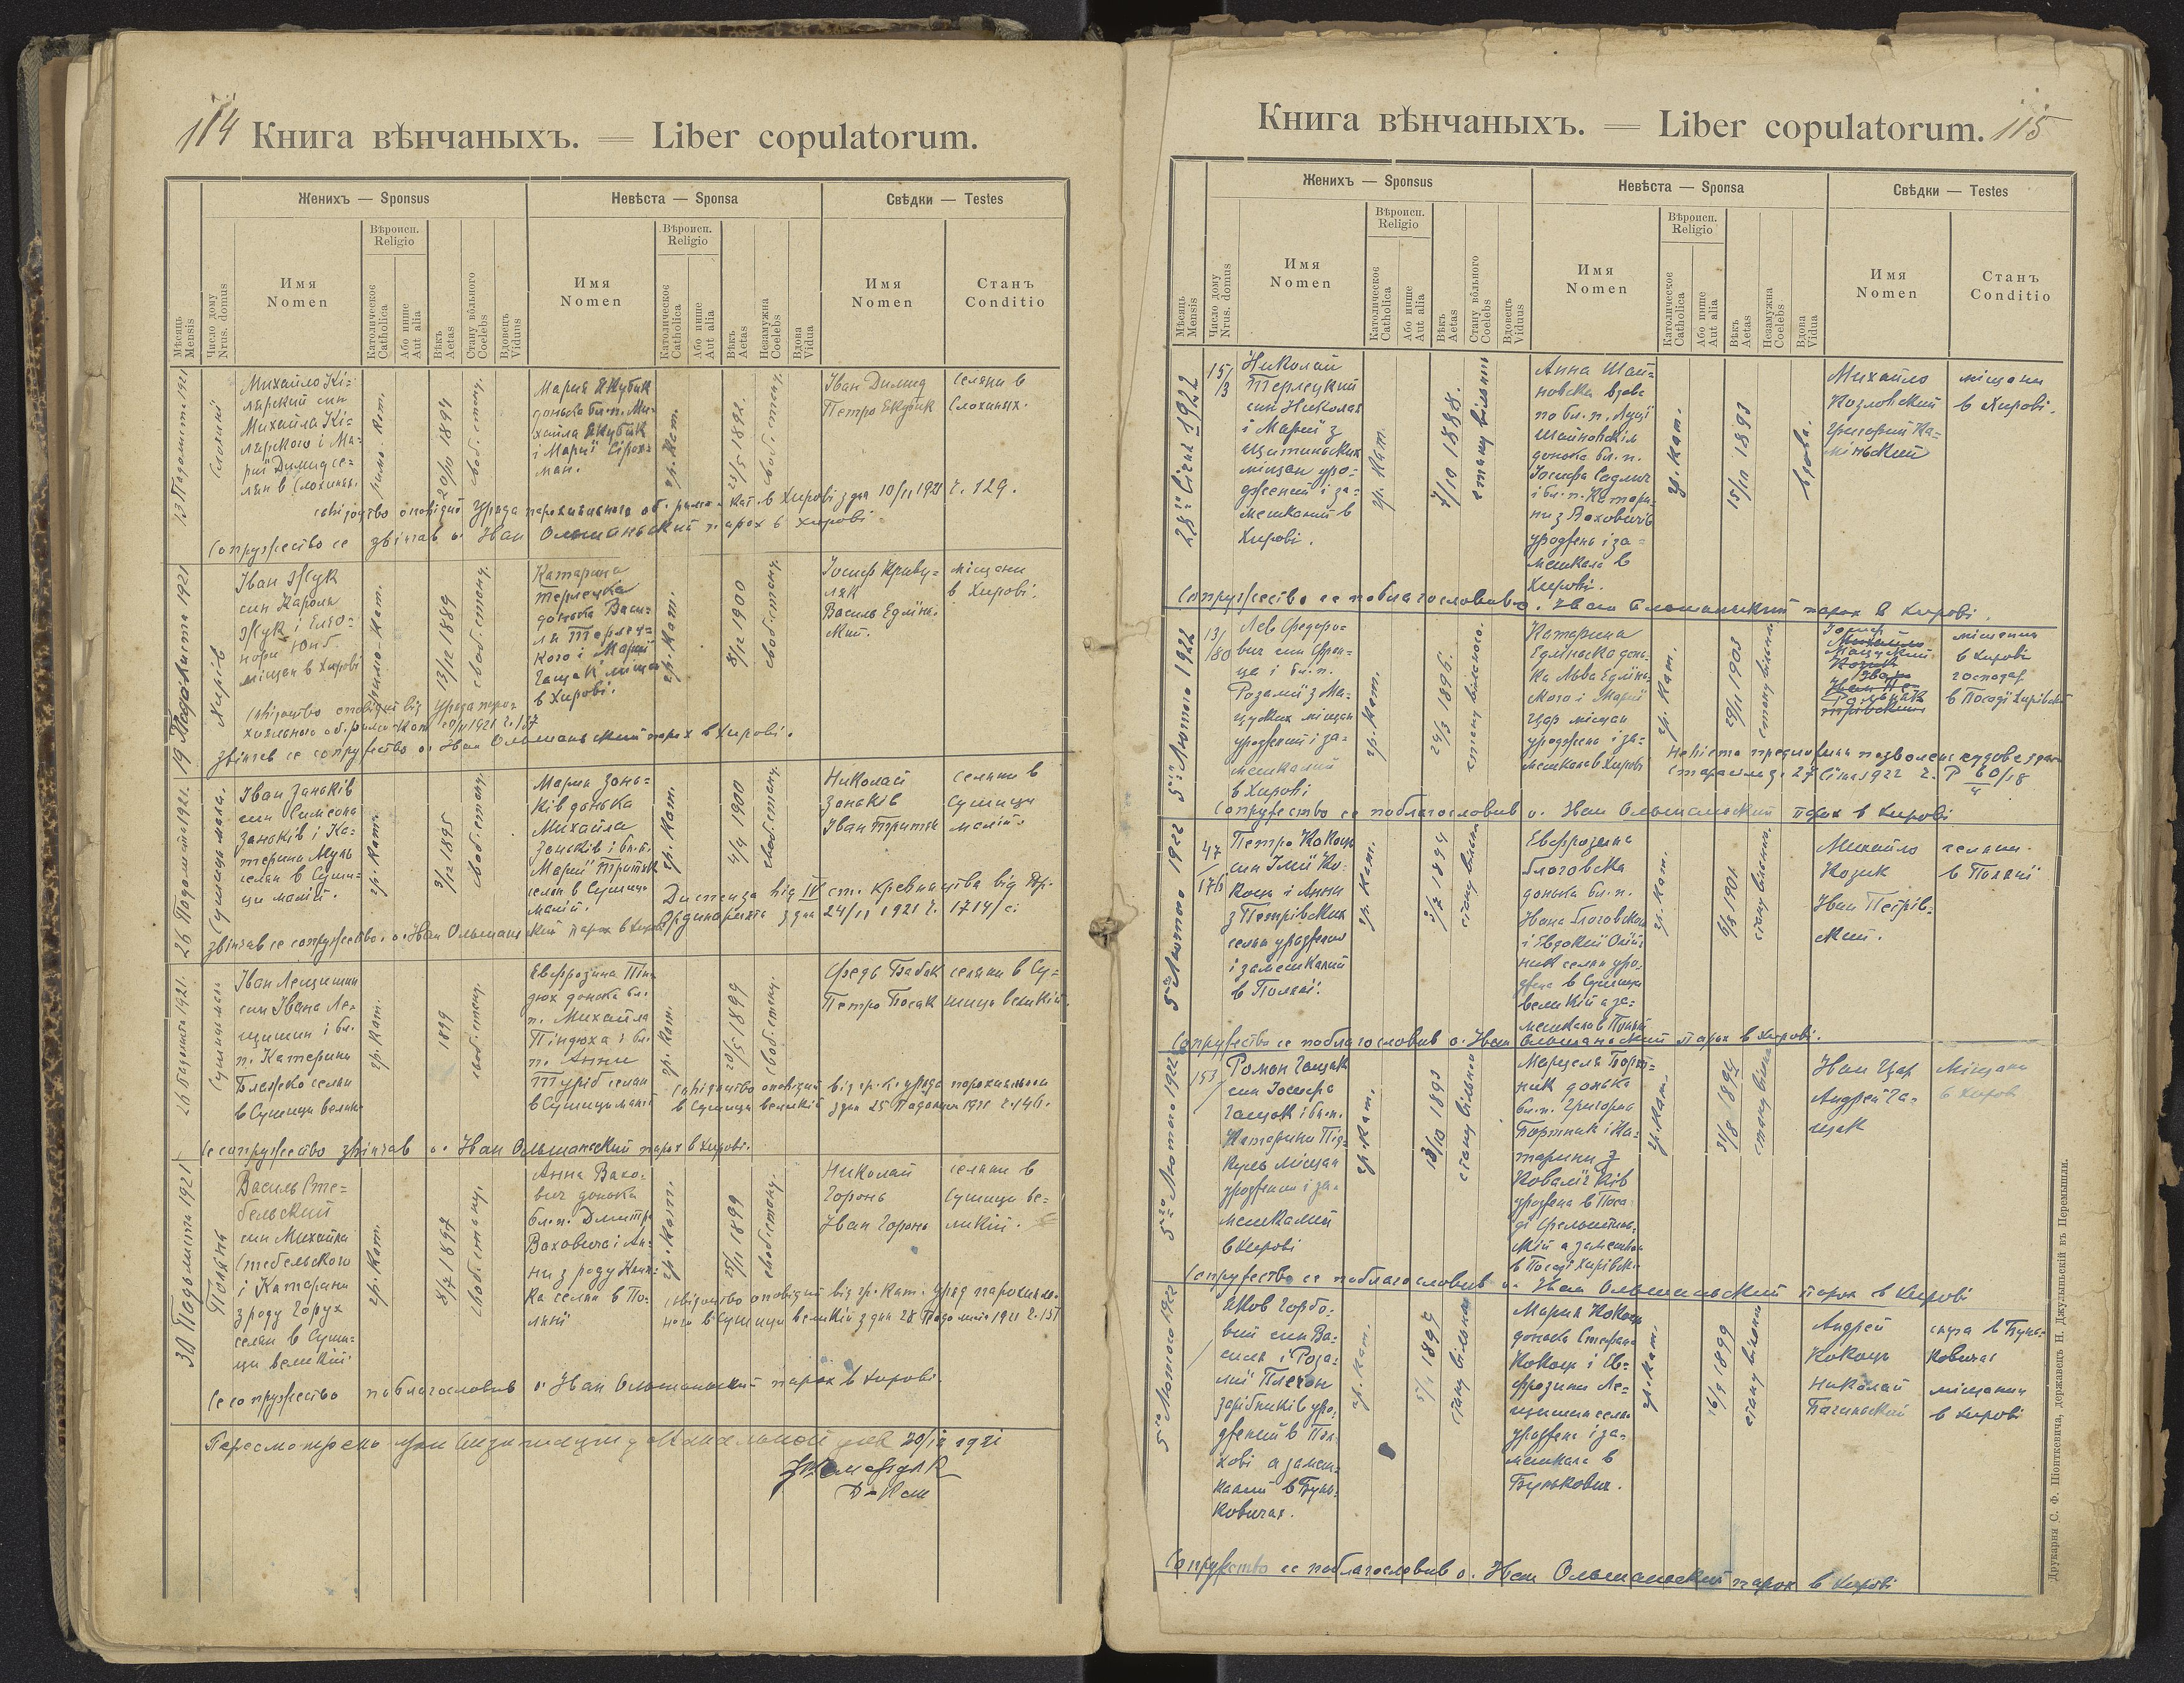 114 Книга вѣнчаныхъ. — Liber copulatorum.
Женихъ — Sponsus
Невѣста — Sponsa
Свѣдки — Testes
Мѣсяць
Mensis
Число дому
Nrus. domus
Имя
Nomen
Вѣроисп.
Religio
Католическое
Catholica
Або инше
Aut alia
Вѣкъ
Aetas
Стану вôльного
Coelebs
Вдовець
Viduus
Имя
Nomen
Вѣроисп.
Religio
Католическое
Catholica
Або инше
Aut alia
Вѣкъ
Aetas
Незамужна
Coelebs
Вдова
Vidua
Имя
Nomen
Станъ
Conditio
13 Падолиста 1921
Михайло Кі=
лярский син
Михайла Кі=
лярского і Ма=
рії Димид се=
лян в Слохинях.
римо. кат.
20/10 1894
своб. стану.
Мария Якубик
донька бл. п. Ми=
хайла Якубик
і Марії Сірох=
ман.
гр. Кат.
25/5 1892.
своб. стану.
Іван Димид
Петро Екубик
селяни в
Слохинях.
Сопружество се звінчав о. Иван Ольшаньский парох в Хирові.
19 Падолиста 1921
Хирів
Іван Жук
син Кароля
Жук і Елео=
нори Юнд.
міщан в Хирові
римо-кат.
13/12 1889
своб. стану.
Катарина
Терлецка
донька Васи=
ля Терлец=
кого і Марії
Гащак міщан
в Хирові.
гр. Кат.
8/12 1900
своб. стану.
Іосиф Криву=
ляк
Василь Едлінь=
ский.
міщани
в Хирові.
звінчав се сопружество о. Иван Ольшаньский парох в Хирові.
26 Падолиста 1921.
Сушиць мала.
Іван Заньків
син Симеона
Заньків і Ка=
терина Муль
селян в Суши=
ци малій.
гр. Кат.
3/12 1895
своб. стану.
Мария Зань=
ків донька
Михайла
Заньків і бл. п.
Марії Притик
селян в Сушици
малій.
гр. Кат.
4/4 1900
своб. стану.
Николай
Заньків
Іван Притик
селяни в
Сушици
малій.
Диспенза від IV ст. Кревнацтва від Пр.
Ординарията з дня 24/11 1921 ч. 1714/
звінчав се сопружество о. Иван Ольшаньский парох в Хирові
26 Падолиста 1921.
Іван Лещишин
син Івана Ле=
щишин і бл.
п. Катерини
Блажко селян
в Сушици велик
гр. Кат.
1899
своб. стану.
Евфрозина Пін=
дюх донька бл.
п. Михайла
Піндюха і бл.
п. Анни
Туріб селян
в Сушици малій
гр. Кат.
20/5 1899
своб. стану.
Федь Бабяк
Петро Посяк
селяни в Су=
шици великій.
свідоцтво оповідий від гр. к. уряда парохияльного
в Сушици великій з дня 25 Падолиста 1921 ч. 146.
Се сопружество звінчав о. Иван Ольшаньский парох в Хирові.
30 Падолиста 1921
Поляна
Василь Сте=
бельский
син Михайла
Стебельского
і Катарини
з роду Горух
селян в Суши=
ци великій
гр. Кат.
8/7 1897
своб. стану.
Анна Вахо=
вич донька
бл. п. Дмитра
Ваховича і Ан=
ни з роду
селян в По=
ляні
гр. Кат.
25/11 1899
своб. стану.
Николай
Горонь
Іван Горонь
селяни в
Сушици ве=
ликій.
свідоцтво оповідий від гр. Кат. Уряд парохиял=
ного в Сушици великій з дня 28 Падолиста 1921 ч. 151
Се сопружество поблагословив о. Иван Ольшаньский парох в Хирові.
Пересмотрено при визитации деканальной дня 20/12 1921
Книга вѣнчаныхъ. — Liber copulatorum. 115
Женихъ — Sponsus
Невѣста — Sponsa
Свѣдки — Testes
Мѣсяць
Mensis
Число дому
Nrus. domus
Имя
Nomen
Вѣроисп.
Religio
Католическое
Catholica
Або инше
Aut alia
Вѣкъ
Aetas
Стану вôльного
Coelebs
Вдовець
Viduus
Имя
Nomen
Вѣроисп.
Religio
Католическое
Catholica
Або инше
Aut alia
Вѣкъ
Aetas
Незамужна
Coelebs
Вдова
Vidua
Имя
Nomen
Станъ
Conditio
28го Січня 1922
15/3
Николай
Терлецкий
син Николая
і Марії з
Щитиньских
міщан уро=
джений і за=
мешканий в
Хирові.
гр. Кат.
7/10 1898.
стану вільний
Анна Шай=
новска вдова
по бл. п. Луці
Шайновскім
донька бл. п.
Іосифа Садлич
і бл. п. Катари=
ни з Ваховичів
уроджена і за=
мешкала в
Хирові.
гр. Кат.
15/10 1893
вдова.
Михайло
Козловский
Григорий Ка=
міньский
міщани
в Хирові.
Сопружество се поблагословив о. Иван Ольшаньский парох в Хирові
5го Лютого 1922
13/80
Лев Федоро=
вич син Фран=
ца і бл. п.
Розалії з Ма=
цуских міщан
уроджений і за=
мешкалий
в Хирові
гр. Кат.
24/3 1896.
стану вільного.
Катарина
Едліньска донь=
ка Льва Едлінь=
ского і Марії
Цар міщан
уроджена і за=
мешкала в Хирові
гр. Кат.
29/11 1903
стану вільна
міщанин
в Хирові
господар
в Посаді Хирівскій
Невіста предложила позволенє судове з дня
27 Січня 1922 ч. P 60/18
Сопружество се поблагословив о. Иван Ольшаньский парох в Хирові
5го Лютого 1922
47
176
Петро Кокоць
син Ілії Ко=
коць і Анни
з Петрівских
селян уроджений
і замешканий
в Поляні.
гр. Кат.
3/7 1894
стану вільн.
Евфрозина
Благовска
донька бл. п.
Ивана Благовского
і Евдокії Олій=
ник селян уро=
джена в Сушици
великій а за=
мешкала в Поляні
гр. Кат.
6/8 1901
стану вільного.
Михайло
Козик
Иван Петрів=
ский.
селяни
в Поляні
Сопружество се поблагословив о. Иван Ольшаньский парох в Хирові.
5го Лютого 1922
153
Роман Гащак
син Іосифа
Гащак і бл. п.
Катарини Під=
куль міщан
уроджений і за=
мешкалий
в Хирові
гр. Кат.
13/10 1893
стану вільного
Марцеля Борт=
ник донька
бл. п. Григория
Бортник і Ка=
тарини з
Ковальчиків
уроджена в Поса=
ді Фельштинь=
скій а замешкала
в Посаді Хирівскій
гр. Кат.
31/8 1894
стану вільна
Иван Цар
Андрей Га=
щак
міщани
в Хирові
Сопружество се поблагословив о. Иван Ольшаньский парох в Хирові
5го Лютого 1922
Яков Горбо=
вий син Ва=
силя і Роза=
лії Плечон
зарібників уро=
джений в
а замеш=
калий в Бунь=
ковичах.
гр. Кат.
5/1 1899
стану вільний
Мария Кокоць
донька Стефана
Кокоць і Ев=
фрозини Ле=
щишин селян
уроджена і за=
мешкала в
Бунькович.
гр. Кат.
16/9 1899
стану вільного
Андрей
Кокоць
Николай
Бачиньский
слуга в Бунь=
ковичах
міщанин
в Хирові
Сопружество се поблагословив о. Иван Ольшаньский парох в Хирові
Друкарня С. Ф. Піонткевича, державець Н. Джулыньскій въ Перемышли.